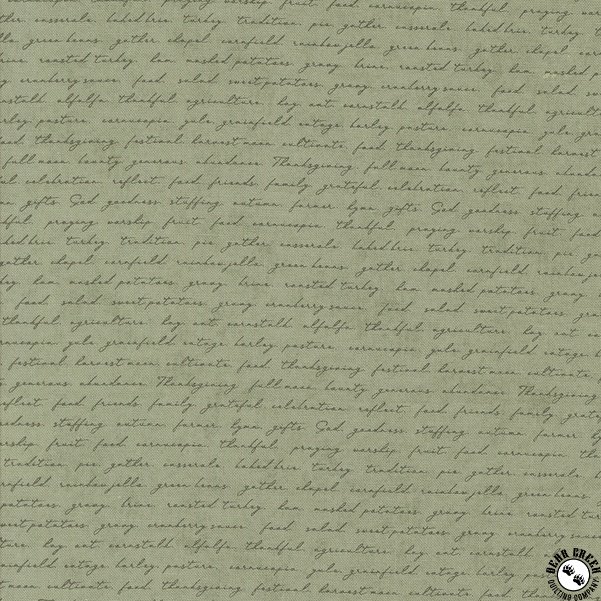 thankful, praying worship, fruit, food, cornucopia, thankful, praying wor
ther, casserole, baked brie, turkey, tradition, pie, gather, casserole, baked brie, turkey, t
lla, green beans, gather, chapel, cornfield, rainbow jello, green beans, gather, chapel, cor
rine, roasted turkey, ham, mashed potatoes, gravy, brine, roasted turkey, ham, mashed p
y, cranberry sauce, food, salad, sweet potatoes, gravy, cranberry sauce, food, salad, sw
nstalk, alfalfa, thankful, agriculture, hay, oat, cornstalk, alfalfa, thankful, agricult
rley, pasture, cornucopia, yule, grainfield, cotage, barley, pasture, cornucopia, yule, gra
ood, thanksgiving, festival, harvest moon, cultivate, food, thanksgiving, festival, harvest
full moon, bounty, generous, abundance, Thanksgiving, full moon, bounty, generous, abunda
ul, celebration, reflect, food, friends, family, grateful, celebration, reflect, food, frien
n, gifts, God, goodness, stuffing, autumn, farmer, hymn, gifts, God, goodness, stuffing
kful, praying, worship, fruit, food, cornucopia, thankful, praying, worship, fruit, food
ked brie, turkey, tradition, pie, gather, casserole, baked brie, turkey, tradition, pie, ga
gather, chapel, cornfield, rainbow jello, green beans, gather, chapel, cornfield, rainbow je
key, ham, mashed potatoes, gravy, brine, roasted turkey, ham, mashed potatoes, gravy
food, salad, sweet potatoes, gravy, cranberry sauce, food, salad, sweet potatoes, gra
thankful, agriculture, hay, oat, cornstalk, alfalfa, thankful, agriculture, hay, oat, co
rnucopia, yule, grainfield, cotage, barley, pasture, cornucopia, yule, grainfield, cotage, b
festival, harvest moon, cultivate, food, thanksgiving, festival, harvest moon, cultivate
generous, abundance, Thanksgiving, full moon, bounty, generous, abundance, Thanksgiving
eflect, food, friends, family, grateful, celebration, reflect, food, friends, family, grate
odness, stuffing, autumn, farmer, hymn, gifts, God, goodness, stuffing, autumn, farmer, hy
rship, fruit, food, cornucopia, thankful, praying, worship, fruit, food, cornucopia, tha
tradition, pie, gather, casserole, baked brie, turkey, tradition, pie, gather, casserole
rnfield, rainbow jello, green beans, gather, chapel, cornfield, rainbow jello, green beans
potatoes, gravy, brine, roasted turkey, ham, mashed potatoes, gravy, brine, roasted
weet potatoes, gravy, cranberry sauce, food, salad, sweet potatoes, gravy, cranberry sauce
ture, hay, oat, cornstalk, alfalfa, thankful, agriculture, hay, oat, cornstalk
ainfield, cotage, barley, pasture, cornucopia, yule, grainfield, cotage, barley, pas
moon, cultivate, food, thanksgiving, festival, harvest moon, cultivate
BEAR CREEK
QUILTING COMPANY